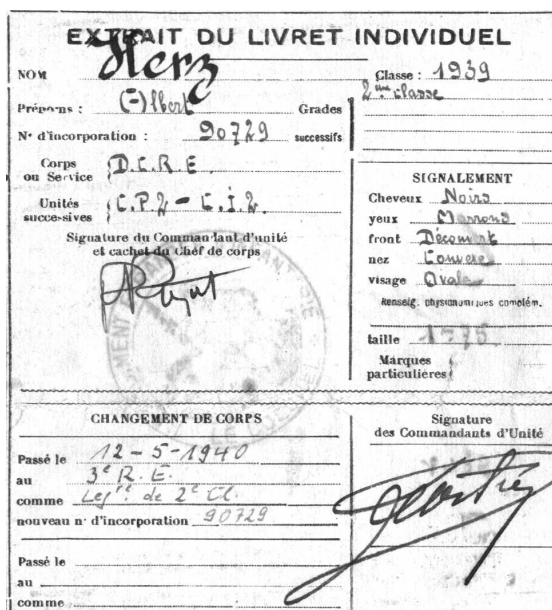 EXTRAIT DU LIVRET INDIVIDUEL
NOM Herz
Prénoms : Albert
N° d'incorporation : 90729
Grades successifs
Classe : 1939
2me classe
Corps ou Service D.C.R.E.
Unités succe-sives C.P.2 - C.I.2.
Signature du Commandant d'unité
et cachet du Chef de corps
SIGNALEMENT
Cheveux Noirs
yeux Marrons
front Découvert
nez Convexe
visage Ovale
Renseig. physionomiques complém.
taille 1m75
Marques
particulières
CHANGEMENT DE CORPS
Passé le 12-5-1940
au 3e R. E.
comme Legre de 2e Cl.
nouveau n° d'incorporation 90729
Passé le
au
comme
Signature
des Commandants d'Unité